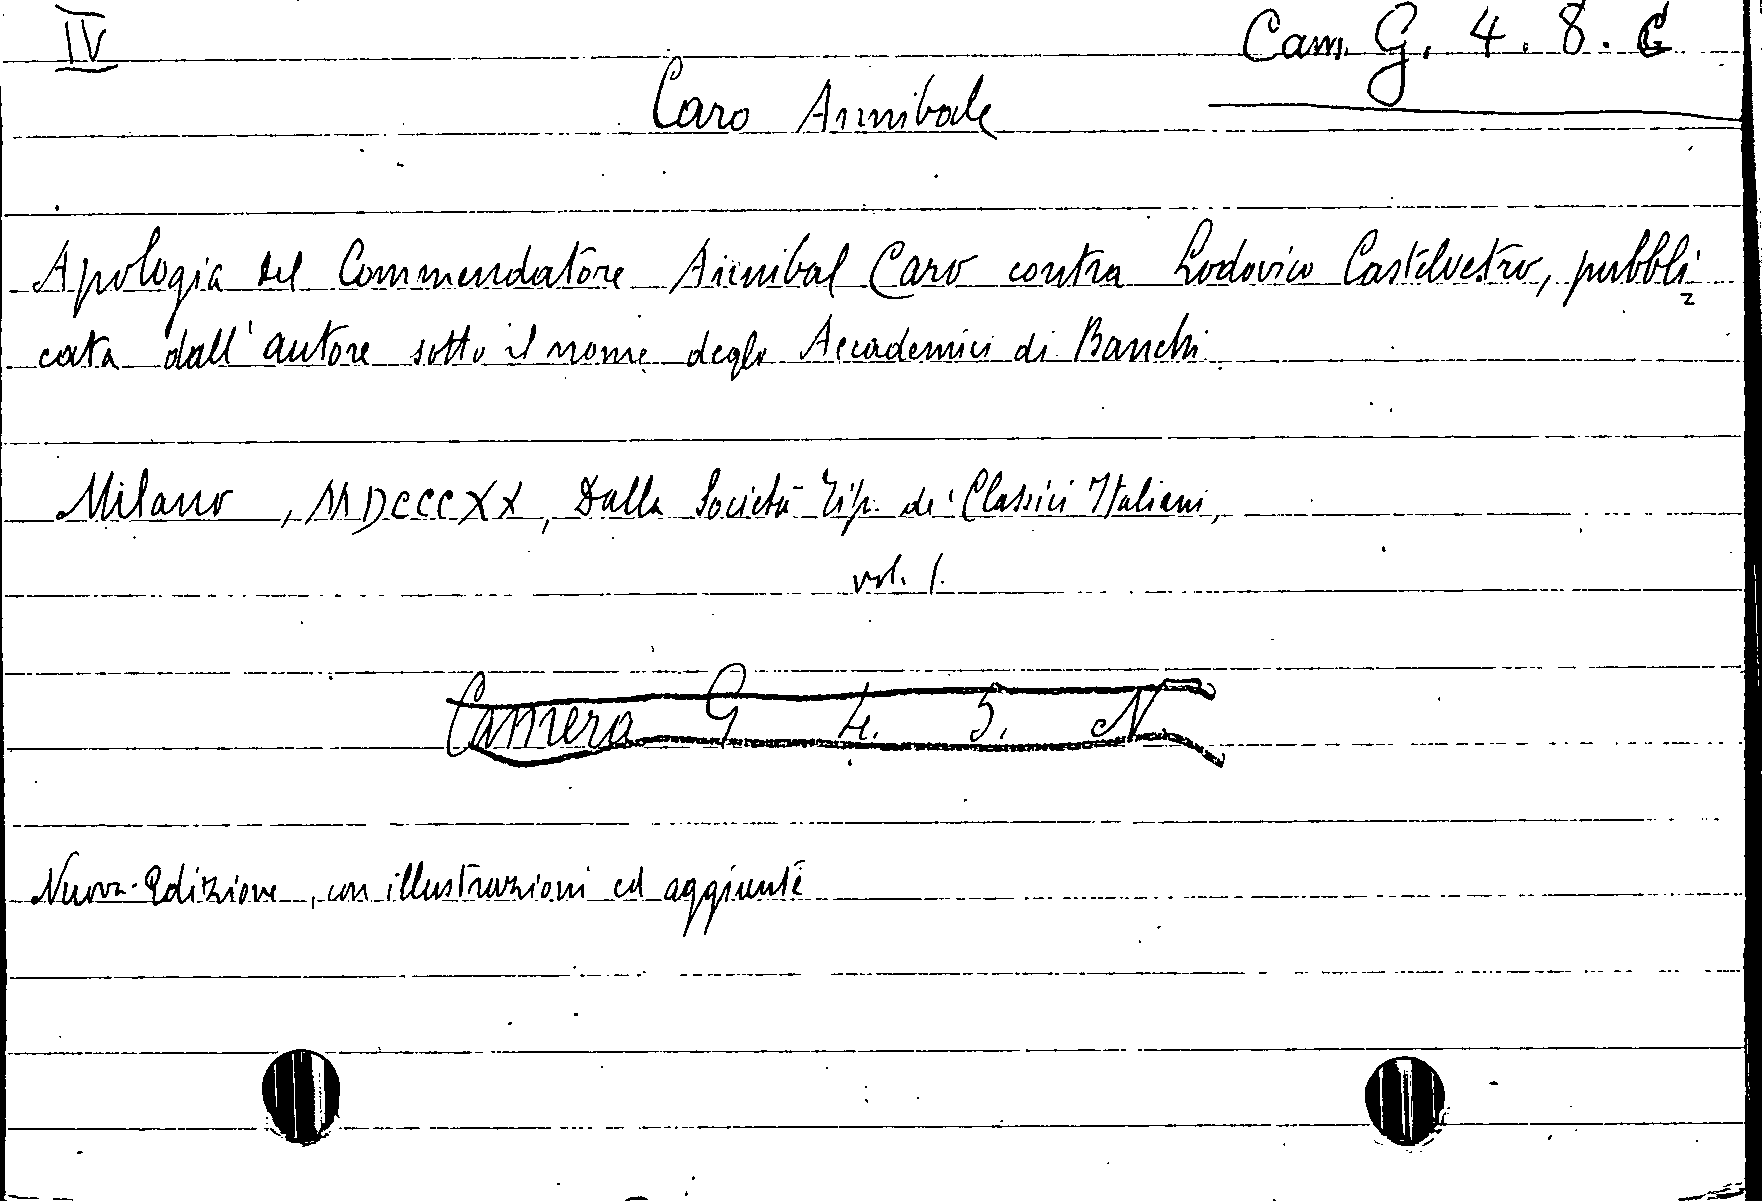 IV
Cam. G. 4. 8. C
Caro Annibale
Apologia del Commendatore Annibal Caro contra Lodovico Castelvetro, pubbli
cata dall'autore sotto il nome degli Accademici di Banchi
Milano, MDCCCXX, Dalla Società Tip. de' Classici Italiani,
vol. 1.
Camera G 4. 5. N.
Nuova Edizione, con illustrazioni ed aggiunte